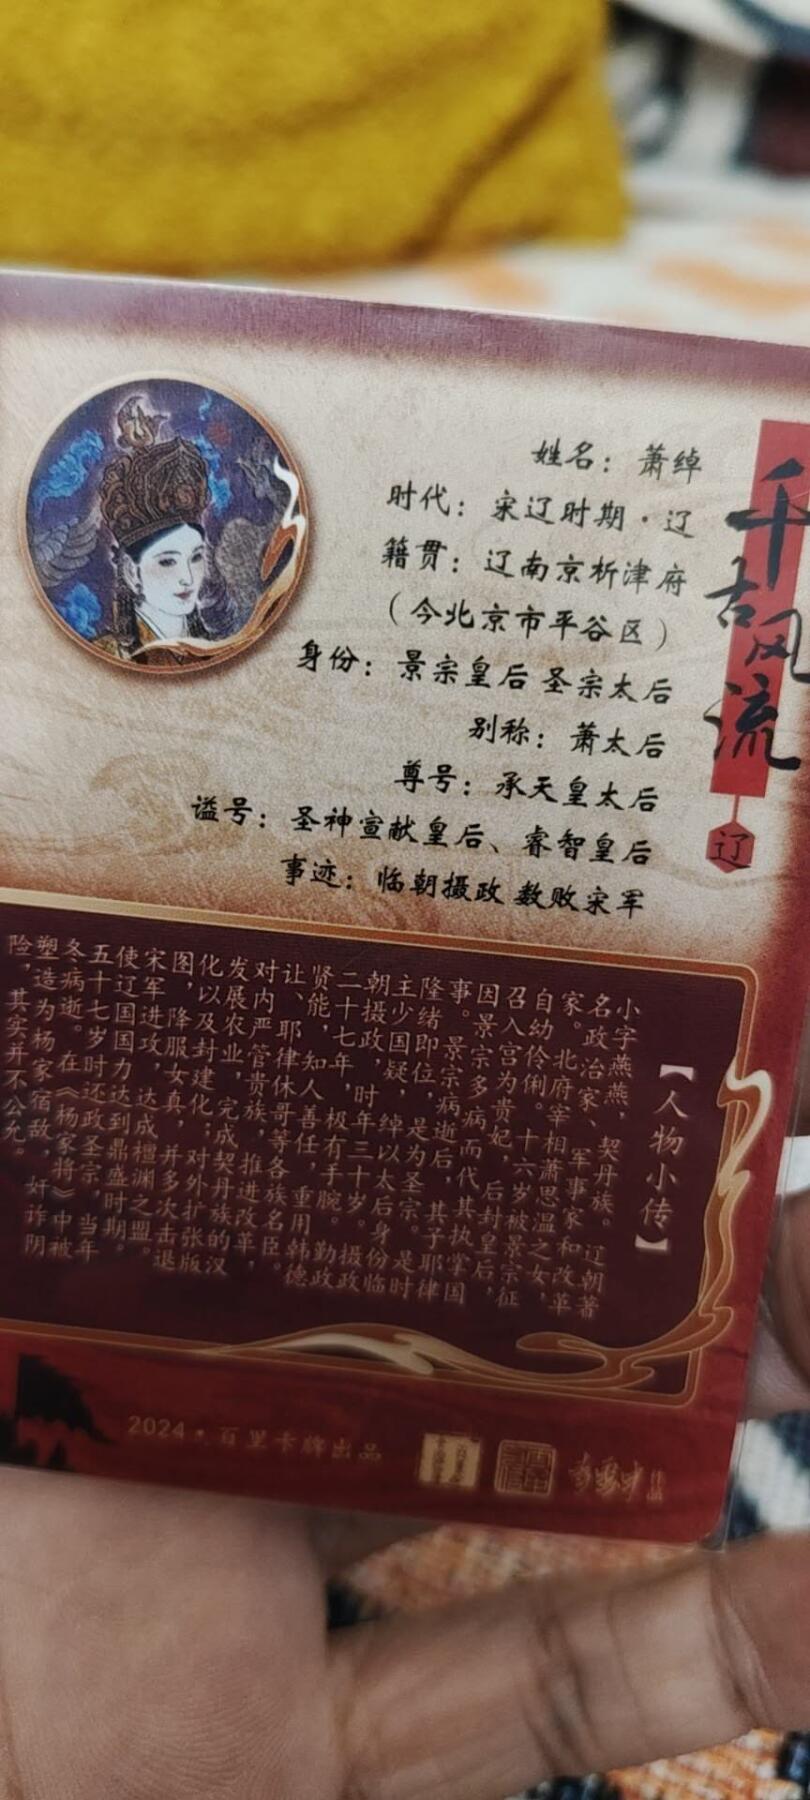 千古风流
辽
姓名：萧绰
时代：宋辽时期·辽
籍贯：辽南京析津府
（今北京市平谷区）
身份：景宗皇后 圣宗太后
别称：萧太后
尊号：承天皇太后
谥号：圣神宣献皇后、睿智皇后
事迹：临朝摄政 数败宋军
【人物小传】
小字燕燕，契丹族。辽朝著
名政治家、军事家和改革
家。北府宰相萧思温之女，
自幼伶俐。十六岁被景宗征
召入宫为贵妃，后封皇后，
因景宗多病而代其执掌国
事。景宗病逝后，其子耶律
隆绪即位，是为圣宗。是时
主少国疑，绰以太后身份临
朝摄政，时年三十岁。摄政
二十七年，极有手腕。勤政
贤能，知人善任，重用韩德
让、耶律休哥等各族名臣。
对内严管贵族，推进改革，
发展农业，完成契丹族的汉
化以及封建化；对外扩张版
图，降服女真，并多次击退
宋军进攻，达成檀渊之盟。
使辽国国力达到鼎盛时期。
五十七岁时还政圣宗，当年
冬病逝。在《杨家将》中被
塑造为杨家宿敌，奸诈阴
险，其实并不公允。
2024·百里卡牌出品